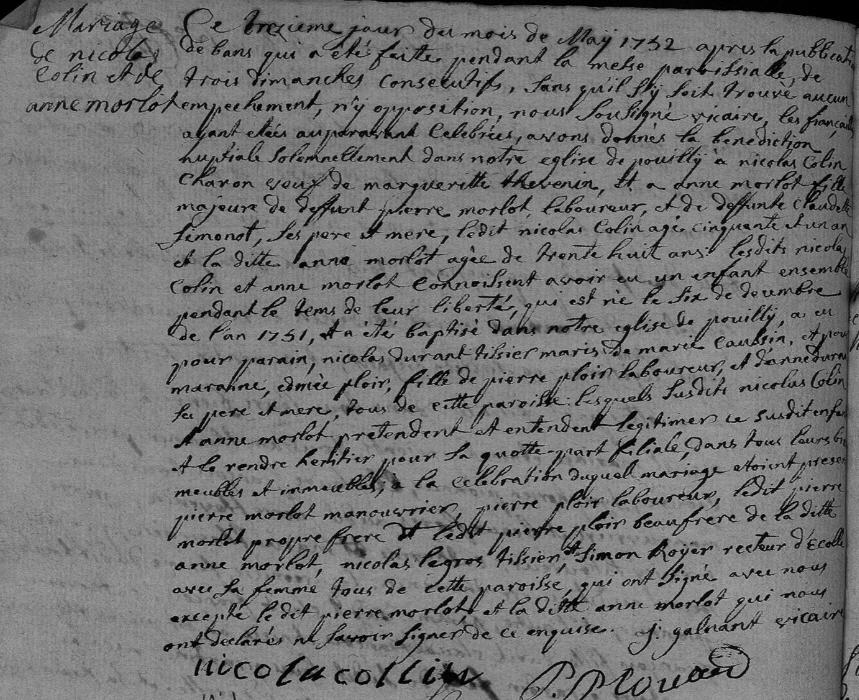 Mariage
de nicolas
Colin et de
anne morlot
Le trezieme jour du mois de Maÿ 1752 apres la publicati
de bans qui a été faitte pendant la messe paroissialle, de
trois dimanches Consecutifs, sans qu'il s'y soit trouvé aucun
empechement, n'y opposition, nous soussigné vicaire, les françaill
ayant etées auparavant Celebrées, avons donnés la benediction
nuptiale solemnellement dans notre eglise de pouilly a nicolas Colin
Charon veuf de margueritte thevenin, Et a anne morlot fille
majeure de deffunt pierre morlot, laboureur, et de deffunte Claudette
Simonot, ses pere et mere, ledit nicolas Colin agé cinquante et un an
et la ditte anne morlot agée de trente huit ans lesdits nicolas
Colin et anne morlot Connoissent avoir eu un enfant ensemble
pendant le tems de leur liberté, qui est né le six de decembre
de l'an 1751, et a été baptisé dans notre eglise de pouilly, a eu
pour parain, nicolas durant tissier maris de marie et pour
maranne, edmée ploir, fille de pierre ploir laboureur, et d'anne duran
ses pere et mere, tous de cette paroisse lesquels susdits nicolas Colin
et anne morlot pretendent et entendent legitimer ce susdit enfan
et le rendre heritier pour sa quotte-part filiale, dans tous leurs bi
meubles et immeubles, a la Celebration duquel mariage etoient presen
pierre morlot manouvrier, pierre ploir laboureur, ledit pierre
morlot propre frere Et ledit pierre ploir beaufrere de la ditte
anne morlot, nicolas legros tissier, et Simon Royer recteur d'Ecolle
avec sa femme tous de cette paroisse, qui ont signé avec nous
excepté ledit pierre morlot, et la ditte anne morlot qui nous
ont declarés ne savoir signer de ce enquise. J. galvant vicaire
nicola collin